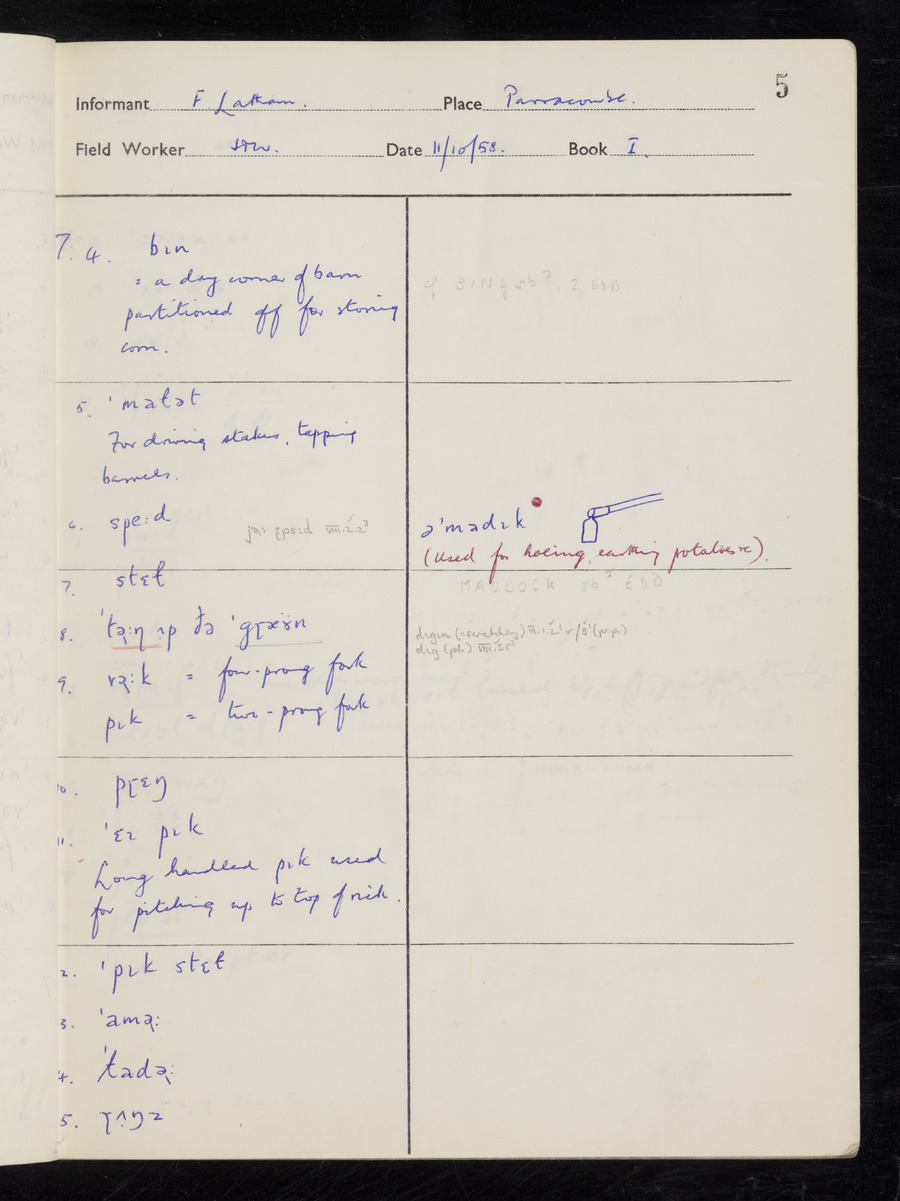 5
Informant F Latham. Place Parracombe.
Field Worker Date 11/10/58. Book I.
7. 4. bɪn
= a dry corner of barn
partitioned off for storing
corn.
cf BING sb², 2 EDD
5. ˈmaɫət
For driving stakes, tapping
barrels.
6. speːd
speːd VIII.
əˈmadɪk
(used for hoeing, earthing potatoes &c).
MADDOCK sb² EDD
7. stɛɫ
8. ˈtəːɳ ʌp ðə
dɪgɪn (=scratching)
dɪg (pt.) VIII.
9. vəːk = four-prong fork
pɪk = two-prong fork
10. pɽɛŋ
11. ˈɛɪ pɪk
Long handled pɪk used
for pitching up to top of rick.
2. ˈpɪk stɛɫ
3. ˈaməː
4. ˈɫadəː
5. ɽʌŋz